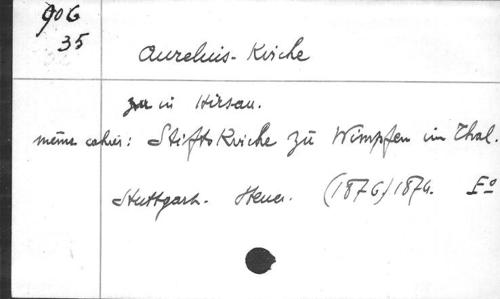 906
35
Aurelius-Kirche
in Hirsau.
même cahier: StiftsKirche zu Wimpfen im Thal.
Stuttgart. (1876) 1874. Fº